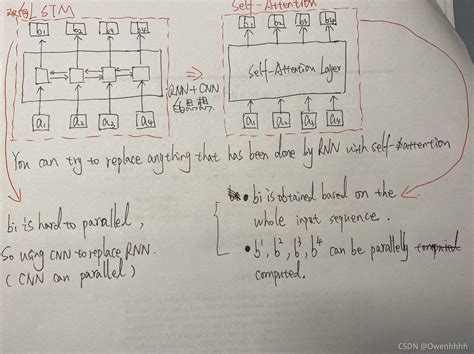 LSTM
Self-Attention
b1 b2 b3 b4
b1 b2 b3 b4
RNN + CNN
的思想
Self-Attention Layer
a1 a2 a3 a4
a1 a2 a3 a4
You can try to replace anything that has been done by RNN with self-attention
bi is hard to parallel,
So using CNN to replace RNN.
(CNN can parallel)
• bi is obtained based on the
whole input sequence.
• b1, b2, b3, b4 can be parallely computed
computed.
CSDN @Owenhhhh